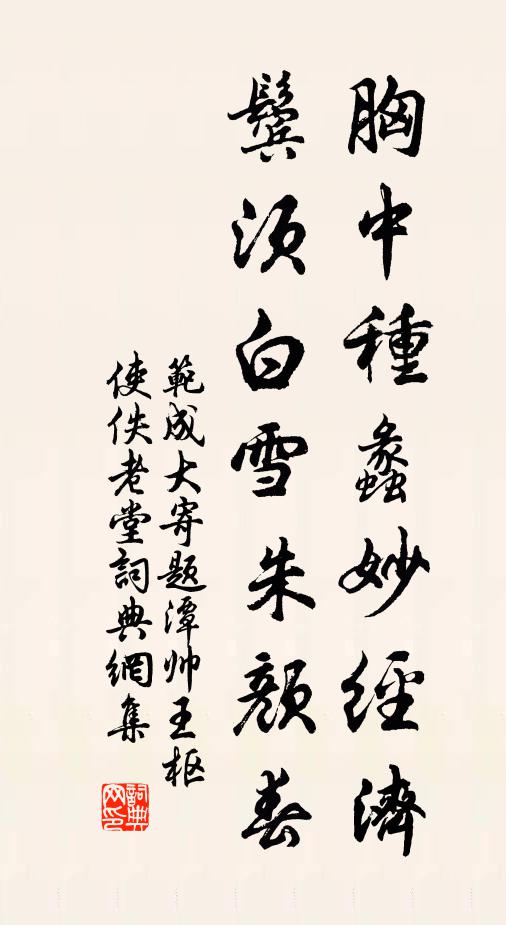 胸中種蠡妙經濟
鬢须白雪朱顔春
範成大寄題潭帅王枢
使佚老堂詞典網集
詞典网印